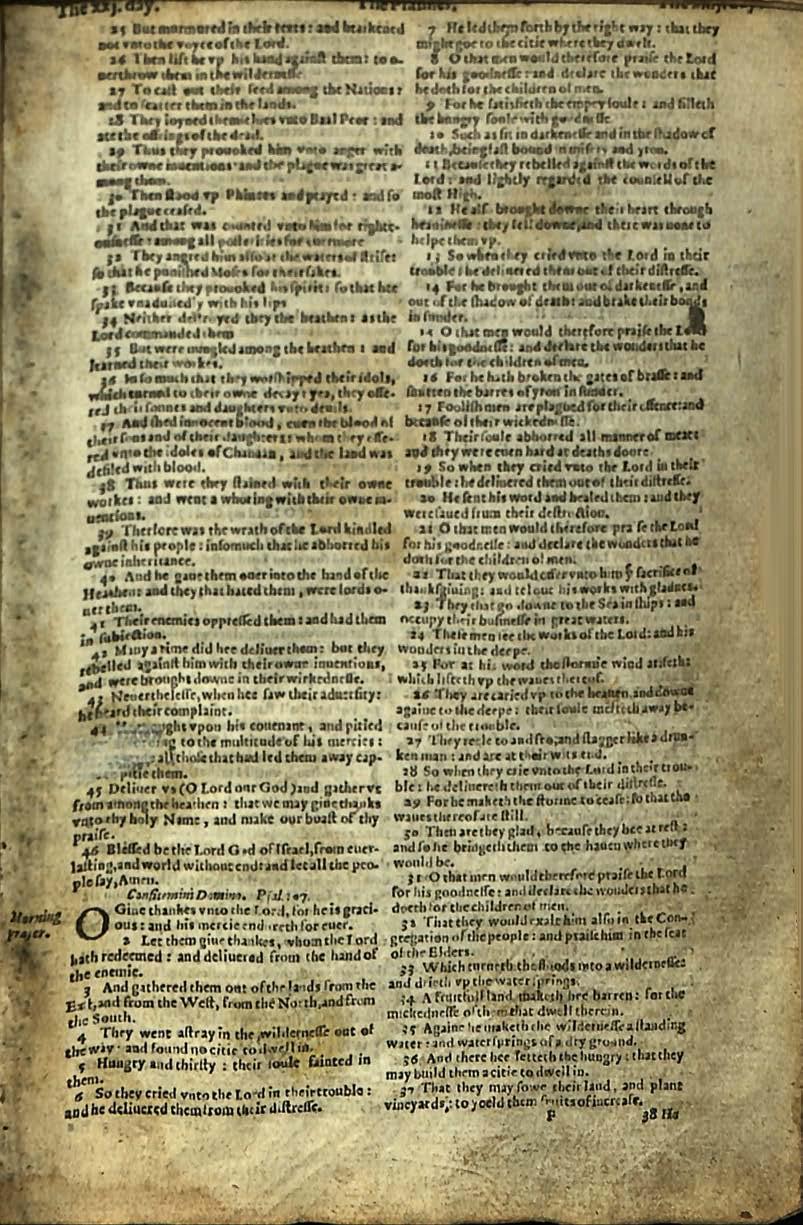 The xxj. day.
25 But murmured in their tents: and hearkened
not vnto the voyce of the Lord.
26 Then lift he vp his hand against them: to o-
uerthrow them in the wildernesse
27 To cast out their seed among the Nations:
and to scatter them in the lands.
28 They ioyned themselues vnto Baal Peor: and
ate the offrings of the dead.
29 Thus they prouoked him vnto anger with
their owne inuentions: and the plague was great a-
mong them.
30 Then stood vp Phinees and prayed: and so
the plague ceased.
31 And that was counted vnto him for righte-
ousnesse: among all posterities for euermore
32 They angred him also at the waters of strife:
so that he punished Moses for their sakes.
33 Because they prouoked his spirit: so that hee
spake vnaduisedly with his lips
34 Neither destroyed they the heathen: as the
Lord commanded them
35 But were mingled among the heathen: and
learned their workes.
36 Insomuch that they worshipped their idols,
which turned to their owne decay: yea, they offe-
red their sonnes and daughters vnto deuils.
37 And shed innocent blood, euen the blood of
their sons and of their daughters: whom they offe-
red vnto the idoles of Chanaan, and the land was
defiled with blood.
38 Thus were they stained with their owne
workes: and went a whoring with their owne in-
uentions.
39 Therfore was the wrath of the Lord kindled
against his people: insomuch that he abhorred his
owne inheritance.
40 And he gaue them ouer into the hand of the
Heathen: and they that hated them, were lords o-
uer them.
41 Their enemies oppressed them: and had them
in subiection.
42 Many a time did hee deliuer them: but they
rebelled against him with their owne inuentions,
and were brought downe in their wickednesse.
43 Neuerthelesse, when hee saw their aduersity:
he heard their complaint.
44 ght vpon his couenant, and pitied
to the multitude of his mercies:
all those that had led them away cap-
pitie them.
45 Deliuer vs (O Lord our God) and gather vs
from among the heathen: that we may giue thanks
vnto thy holy Name, and make our boast of thy
praise.
46 Blessed be the Lord God of Israel, from euer-
lasting, and world without end: and let all the peo-
ple say, Amen.
Confitemini Domino. Psal. 107.
Morning
prayer.
O Giue thankes vnto the Lord, for he is graci-
ous: and his mercie endureth for euer.
2 Let them giue thankes, whom the Lord
hath redeemed: and deliuered from the hand of
the enemie.
3 And gathered them out of the lands from the
East, and from the West, from the North, and from
the South.
4 They went astray in the wildernesse out of
the way: and found no citie to dwell in.
5 Hungry and thirsty: their soule fainted in
them.
6 So they cried vnto the Lord in their trouble:
and he deliuered them from their distresse.
7 He led them forth by the right way: that they
might goe to the citie where they dwelt.
8 O that men would therefore praise the Lord
for his goodnesse: and declare the wonders that
he doth for the children of men.
9 For he satisfieth the empty soule: and filleth
the hungry soule with goodnesse
10 Such as sit in darkenesse and in the shadow of
death, being fast bound in misery and yron.
11 Because they rebelled against the words of the
Lord: and lightly regarded the counsell of the
most High.
12 He also brought downe their heart through
heauinesse: they fell downe, and there was none to
helpe them vp.
13 So when they cried vnto the Lord in their
trouble: he deliuered them out of their distresse.
14 For he brought them out of darkenesse, and
out of the shadow of death: and brake their bonds
in sunder.
14 O that men would therefore praise the Lord
for his goodnesse: and declare the wonders that he
doeth for the children of men.
16 For he hath broken the gates of brasse: and
smitten the barres of yron in sunder.
17 Foolish men are plagued for their offence: and
because of their wickednesse.
18 Their soule abhorred all manner of meate
and they were euen hard at deaths doore
19 So when they cried vnto the Lord in their
trouble: he deliuered them out of their distresse.
20 He sent his word and healed them: and they
were saued from their destruction.
21 O that men would therefore praise the Lord
for his goodnesse: and declare the wonders that he
doth for the children of men.
22 That they would offer vnto him yͤ sacrifice of
thanksgiuing: and tel out his works with gladnes.
23 They that go downe to the Sea in ships: and
occupy their businesse in great waters.
24 These men see the works of the Lord: and his
wonders in the deepe.
25 For at his word the stormie wind ariseth:
which lifteth vp the waues thereof.
26 They are caried vp to the heauen, and downe
againe to the deepe: their soule melteth away be-
cause of the trouble.
27 They reele to and fro, and stagger like a drun-
ken man: and are at their wits end.
28 So when they crie vnto the Lord in their trou-
ble: he deliuereth them out of their distresse.
29 For he maketh the storme to cease: so that the
waues thereof are still.
30 Then are they glad, because they bee at rest:
and so he bringeth them to the hauen where they
would be.
31 O that men would therefore praise the Lord
for his goodnesse: and declare the wonders that he
doeth for the children of men.
32 That they would exalt him also in the Con-
gregation of the people: and praise him in the seat
of the Elders.
33 Which turneth the floods into a wildernesse
and drieth vp the water springs.
34 A fruitfull land maketh hee barren: for the
wickednesse of them that dwell therein.
35 Againe he maketh the wildernesse a standing
water: and water springs of a dry ground.
36 And there hee setteth the hungry: that they
may build them a citie to dwell in.
37 That they may sowe their land, and plant
vineyards: to yeeld them fruits of increase.
P
38 He